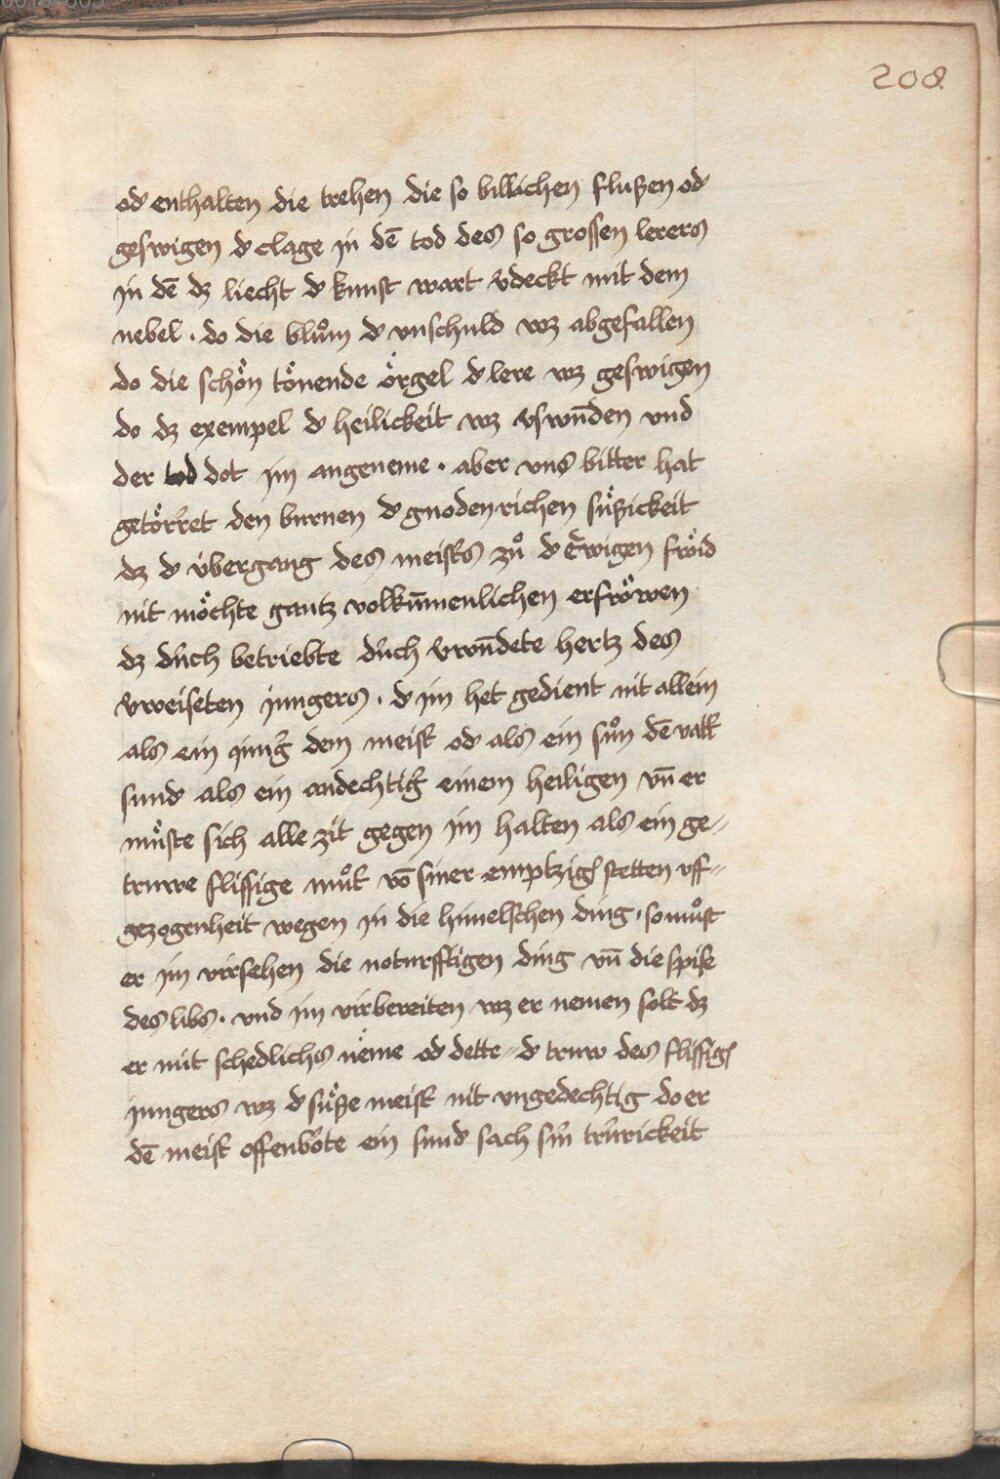 208
od' enthalten die trehen die so billichen flußen od'
geswigen d' clage in dē tod des so grossen lerers
in dē dz liecht d' kunst wart v'deckt mit dem
nebel . do die blům d' vnschuld wz abgefallen
do die schön tönende örgel d' lere wz geswigen
do dz exempel d' heilickeit wz v'swūden vnd
der tod dot im angeneme . aber vns bitter hat
getörret den burnen d' gnodenrichen süßickeit
dz d' übergang des meist's zů d' Ewigen fröid
nit möchte gantz volkūmenlichen erfröwen
dz durch betriebte durch v'wūdete hertz des
v'weiseten jungers . d' im het gedient nit allein
als ein jung' dem meist' od' als ein sůn dē vatt'
sund' als ein andechtig' einem heiligen vn̄ er
můste sich alle zit gegen im halten als ein ge„
truwe flissige můt' vō siner emptzigē stetten vff„
gezogenheit wegen in die himelschen ding . so můst
er im virsehen die noturfftigen ding vn̄ die spise
des libs . vnd im virbereiten wz er nemen solt dz
er nüt schedlichs neme od' dette „ d' truw des flissigē
jungers wz d' süße meist' nit vngedechtig do er
dē meist' offenbōte ein sund' sach sin' trurickeit